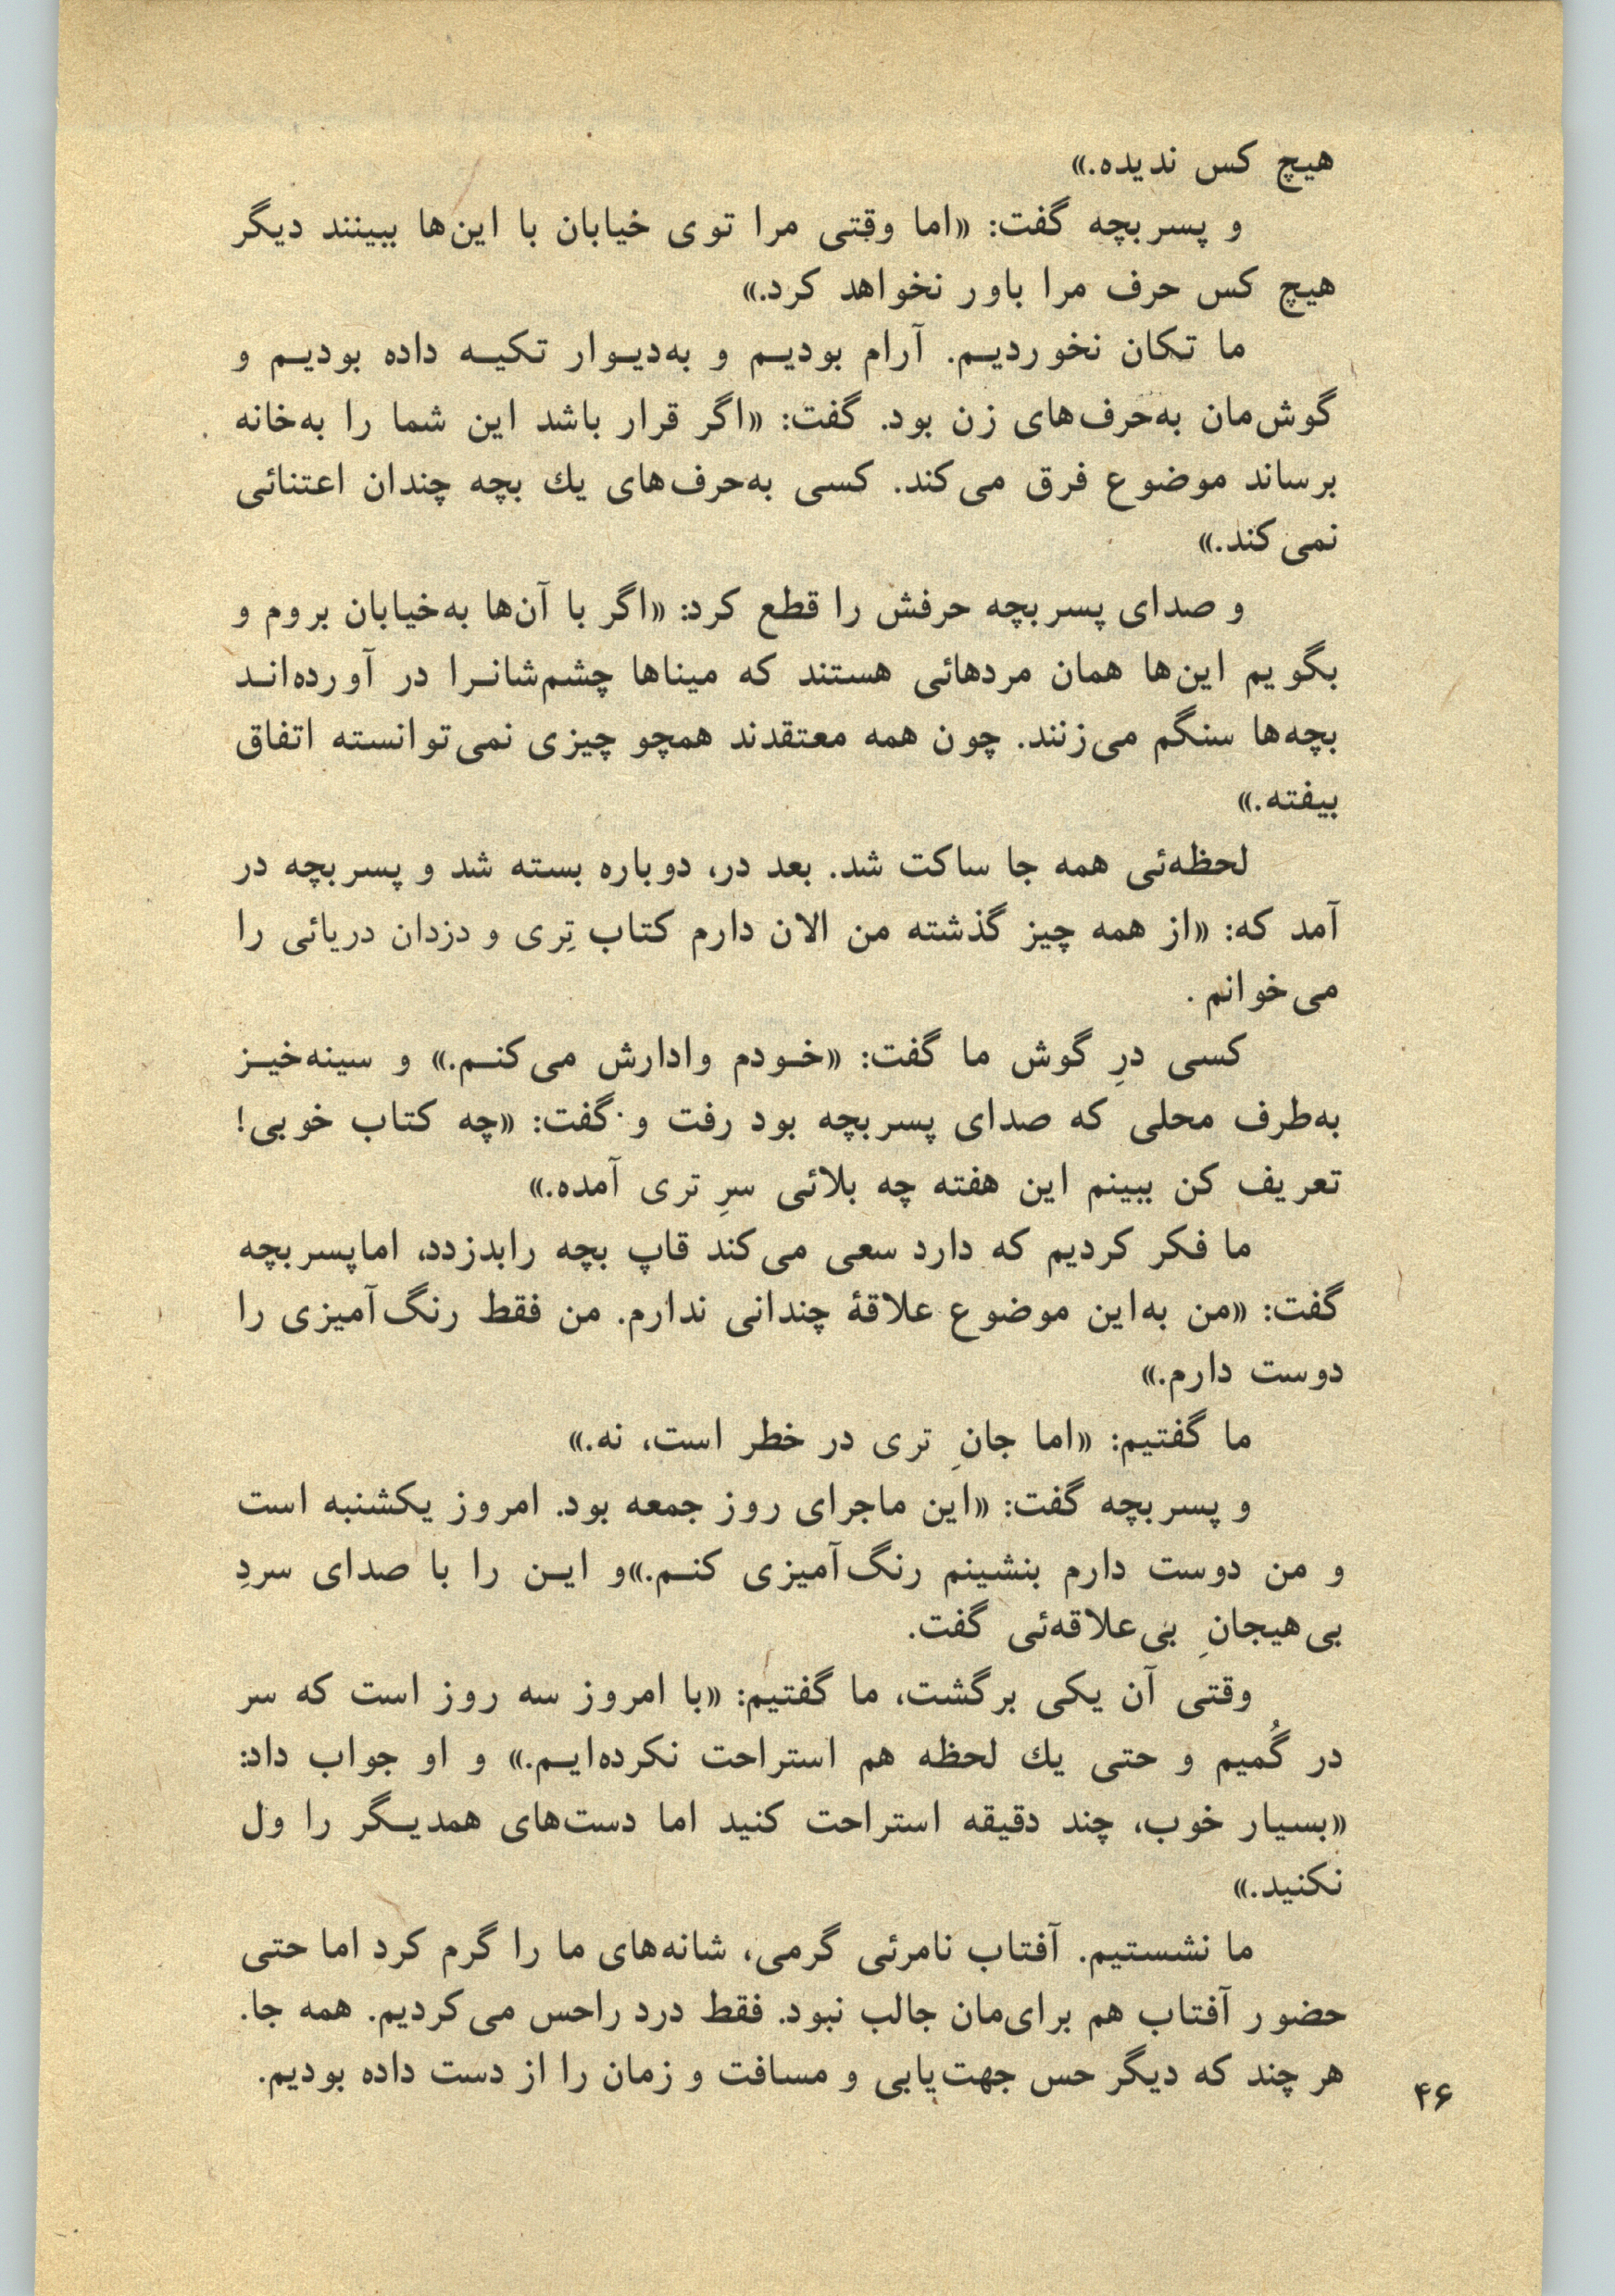 هیچ کس ندیده.»
و پسربچه گفت: «اما وقتی مرا توی خیابان با این‌ها ببینند دیگر
هیچ کس حرف مرا باور نخواهد کرد.»
ما تکان نخوردیم. آرام بودیم و به‌دیوار تکیه داده بودیم و
گوش‌مان به‌حرف‌های زن بود. گفت: «اگر قرار باشد این شما را به‌خانه
برساند موضوع فرق می‌کند. کسی به‌حرف‌های یك بچه چندان اعتنائی
نمی‌کند.»
و صدای پسربچه حرفش را قطع کرد: «اگر با آن‌ها به‌خیابان بروم و
بگویم این‌ها همان مردهائی هستند که میناها چشم‌شانرا در آورده‌اند
بچه‌ها سنگم می‌زنند. چون همه معتقدند همچو چیزی نمی‌توانسته اتفاق
بیفته.»
لحظه‌ئی همه جا ساکت شد. بعد در، دوباره بسته شد و پسربچه در
آمد که: «از همه چیز گذشته من الان دارم کتاب تِری و دزدان دریائی را
می‌خوانم.
کسی درِ گوش ما گفت: «خودم وادارش می‌کنم.» و سینه‌خیز
به‌طرف محلی که صدای پسربچه بود رفت و گفت: «چه کتاب خوبی!
تعریف کن ببینم این هفته چه بلائی سرِ تری آمده.»
ما فکر کردیم که دارد سعی می‌کند قاپ بچه رابدزدد، اماپسربچه
گفت: «من به‌این موضوع علاقهٔ چندانی ندارم. من فقط رنگ‌آمیزی را
دوست دارم.»
ما گفتیم: «اما جانِ تری در خطر است، نه.»
و پسربچه گفت: «این ماجرای روز جمعه بود. امروز یکشنبه است
و من دوست دارم بنشینم رنگ‌آمیزی کنم.»و این را با صدای سردِ
بی‌هیجانِ بی‌علاقه‌ئی گفت.
وقتی آن یکی برگشت، ما گفتیم: «با امروز سه روز است که سر
در گُمیم و حتی یك لحظه هم استراحت نکرده‌ایم.» و او جواب داد:
«بسیار خوب، چند دقیقه استراحت کنید اما دست‌های همدیگر را ول
نکنید.»
ما نشستیم. آفتاب نامرئی گرمی، شانه‌های ما را گرم کرد اما حتی
حضور آفتاب هم برای‌مان جالب نبود. فقط درد راحس می‌کردیم. همه جا.
هر چند که دیگر حس جهت‌یابی و مسافت و زمان را از دست داده بودیم.
۴۶